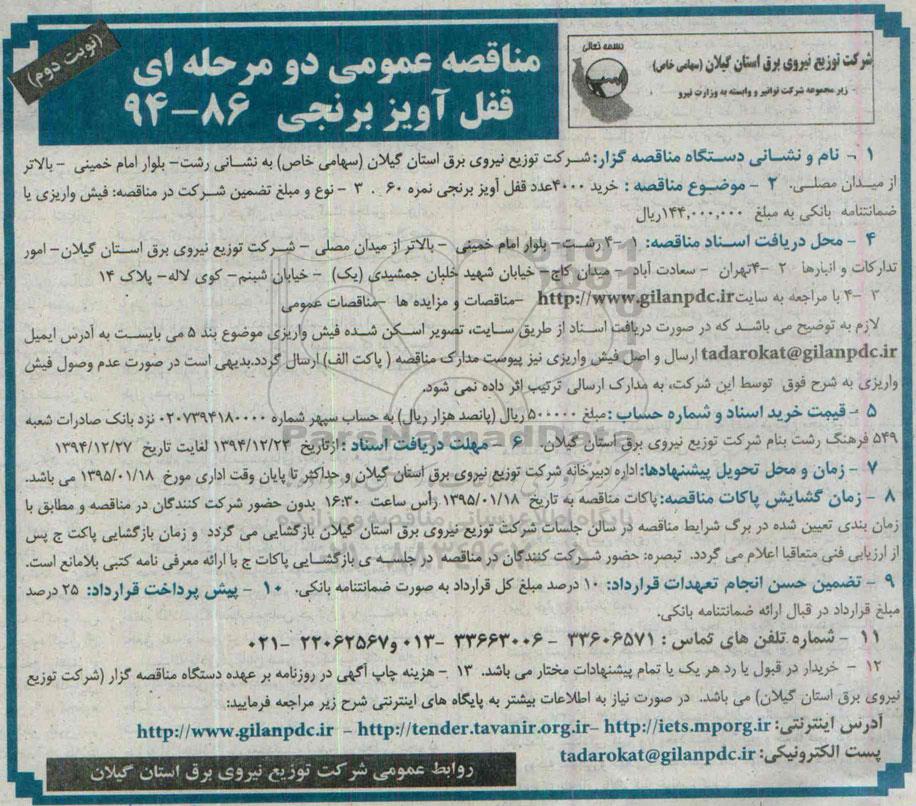 بسمه تعالی
شرکت توزیع نیروی برق استان گیلان (سهامی خاص)
زیر مجموعه شرکت توانیر و وابسته به وزارت نیرو
مناقصه عمومی دو مرحله ای
قفل آویز برنجی ۸۶-۹۴
(نوبت دوم)
۱ - نام و نشانی دستگاه مناقصه گزار: شرکت توزیع نیروی برق استان گیلان (سهامی خاص) به نشانی رشت- بلوار امام خمینی - بالاتر
از میدان مصلی. ۲ - موضوع مناقصه : خرید ۴۰۰۰عدد قفل آویز برنجی نمره ۶۰ . ۳ - نوع و مبلغ تضمین شرکت در مناقصه: فیش واریزی یا
ضمانتنامه بانکی به مبلغ ۱۴۴,۰۰۰,۰۰۰ریال
۴ - محل دریافت اسناد مناقصه: ۱ -۴ رشت- بلوار امام خمینی - بالاتر از میدان مصلی - شرکت توزیع نیروی برق استان گیلان- امور
تدارکات و انبارها ۲ -۴تهران - سعادت آباد - میدان کاج- خیابان شهید خلبان جمشیدی (یک) - خیابان شبنم- کوی لاله- پلاک ۱۴
۳ -۴ با مراجعه به سایت http://www.gilanpdc.ir -مناقصات و مزایده ها -مناقصات عمومی
لازم به توضیح می باشد که در صورت دریافت اسناد از طریق سایت، تصویر اسکن شده فیش واریزی موضوع بند ۵ می بایست به آدرس ایمیل
tadarokat@gilanpdc.ir ارسال و اصل فیش واریزی نیز پیوست مدارک مناقصه ( پاکت الف) ارسال گردد.بدیهی است در صورت عدم وصول فیش
واریزی به شرح فوق توسط این شرکت، به مدارک ارسالی ترتیب اثر داده نمی شود.
۵ - قیمت خرید اسناد و شماره حساب : مبلغ ۵۰۰۰۰۰ ریال (پانصد هزار ریال) به حساب سپهر شماره ۰۲۰۷۳۹۴۱۸۰۰۰۰ نزد بانک صادرات شعبه
۵۴۹ فرهنگ رشت بنام شرکت توزیع نیروی برق استان گیلان. ۶ - مهلت دریافت اسناد : ازتاریخ ۱۳۹۴/۱۲/۲۴ لغایت تاریخ ۱۳۹۴/۱۲/۲۷
۷ - زمان و محل تحویل پیشنهادها: اداره دبیرخانه شرکت توزیع نیروی برق استان گیلان و حداکثر تا پایان وقت اداری مورخ ۱۳۹۵/۰۱/۱۸ می باشد.
۸ - زمان گشایش پاکات مناقصه: پاکات مناقصه به تاریخ ۱۳۹۵/۰۱/۱۸ رأس ساعت ۱۶:۳۰ بدون حضور شرکت کنندگان در مناقصه و مطابق با
زمان بندی تعیین شده در برگ شرایط مناقصه در سالن جلسات شرکت توزیع نیروی برق استان گیلان بازگشایی می گردد و زمان بازگشایی پاکت ج پس
از ارزیابی فنی متعاقبا اعلام می گردد. تبصره: حضور شرکت کنندگان در مناقصه در جلسه ی بازگشایی پاکات ج با ارائه معرفی نامه کتبی بلامانع است.
۹ - تضمین حسن انجام تعهدات قرارداد: ۱۰ درصد مبلغ کل قرارداد به صورت ضمانتنامه بانکی. ۱۰ - پیش پرداخت قرارداد: ۲۵ درصد
مبلغ قرارداد در قبال ارائه ضمانتنامه بانکی.
۱۱ - شماره تلفن های تماس : ۳۳۶۰۶۵۷۱ - ۳۳۶۶۳۰۰۶ -۰۱۳ و۲۲۰۶۲۵۶۷ -۰۲۱
۱۲ - خریدار در قبول یا رد هر یک یا تمام پیشنهادات مختار می باشد. ۱۳ - هزینه چاپ آگهی در روزنامه بر عهده دستگاه مناقصه گزار (شرکت توزیع
نیروی برق استان گیلان) می باشد. در صورت نیاز به اطلاعات بیشتر به پایگاه های اینترنتی شرح زیر مراجعه فرمایید:
آدرس اینترنتی: http://www.gilanpdc.ir - http://tender.tavanir.org.ir- http://iets.mporg.ir
پست الکترونیکی: tadarokat@gilanpdc.ir
روابط عمومی شرکت توزیع نیروی برق استان گیلان
ParsNamadData